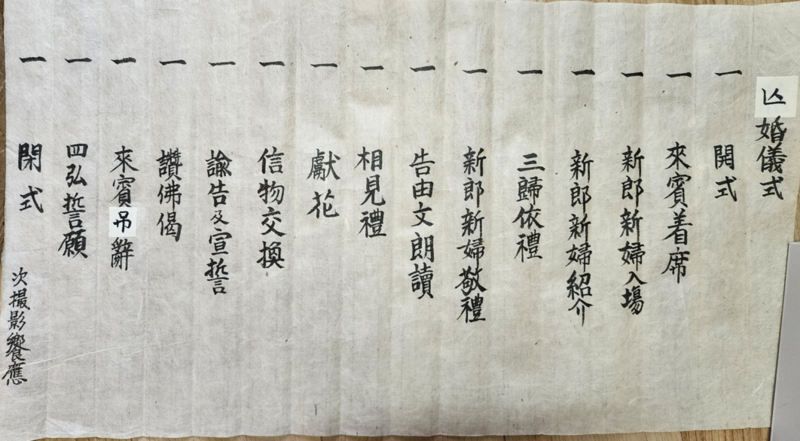 亾婚儀式
一 開式
一 來賓着席
一 新郎新婦入場
一 新郎新婦紹介
一 三歸依禮
一 新郎新婦敬禮
一 告由文朗讀
一 相見禮
一 獻花
一 信物交換
一 諭告及宣誓
一 讚佛偈
一 來賓吊辭
一 四弘誓願
一 閉式
次撮影饗應